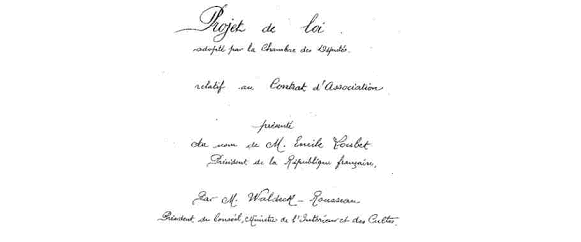 Projet de loi
adopté par la Chambre des Députés
relatif au Contrat d'Association
présenté
au nom de M. Emile Loubet
Président de la République française,
Par M. Waldeck-Rousseau
Président du Conseil, Ministre de l'Intérieur et des Cultes.